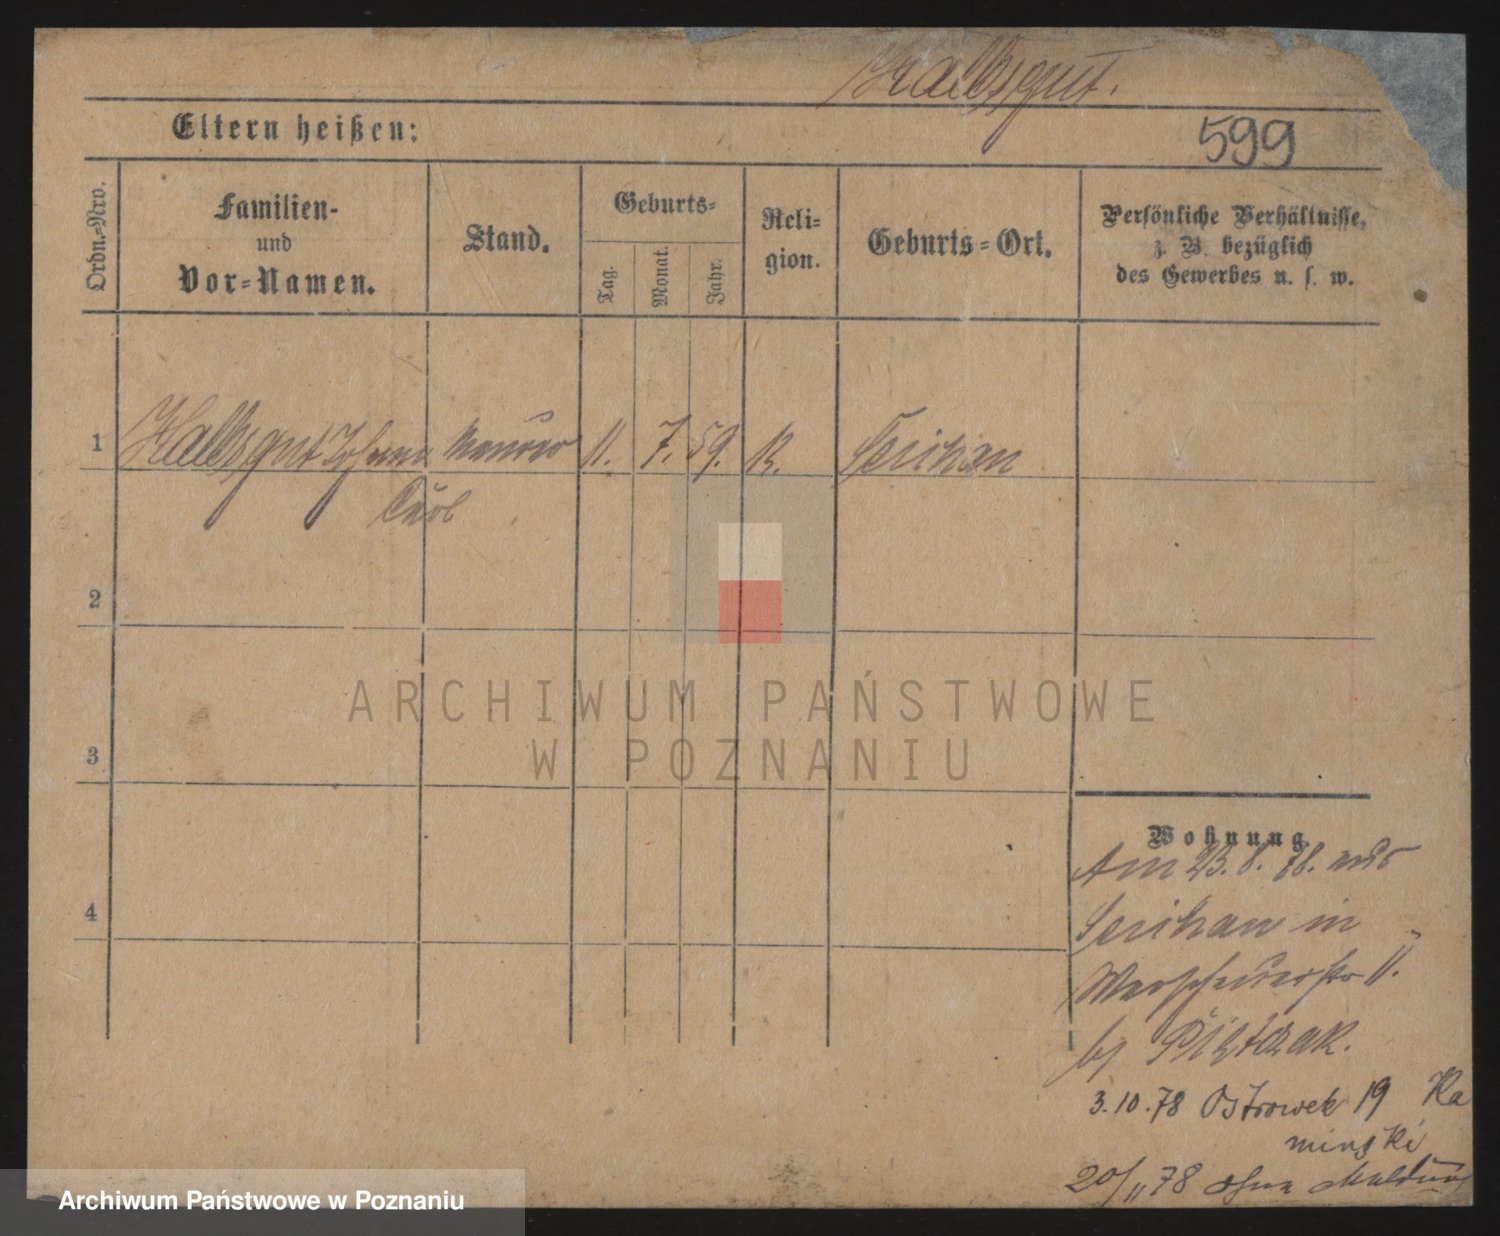 Kalksgut.
Eltern heißen:
599
Ordn.-Nro.
Familien-
und
Vor-Namen.
Stand.
Geburts-
Tag.
Monat.
Jahr.
Reli-
gion.
Geburts-Ort.
Persönliche Verhältnisse,
z. B. bezüglich
des Gewerbes u. s. w.
1 Kalksgut Johann Maurer 11. 7. 59. K.
Carl
2
3
4
ARCHIWUM PAŃSTWOWE
W POZNANIU
Wohnung
Am 23. 8. 78. aus
in
11.
by
3.10.78 Ostrowek 19 Ka
minski
20/11 78 ohne Meldung
Archiwum Państwowe w Poznaniu